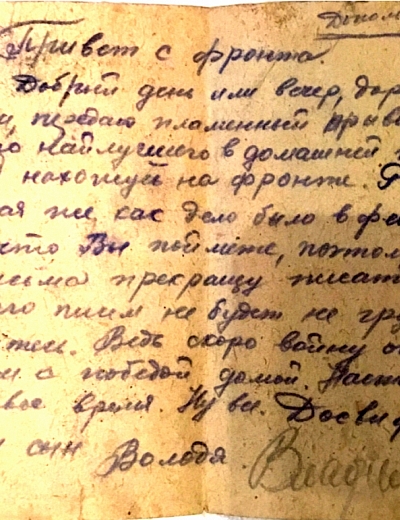 Привет с фронта.
Добрый день или вечер, дор
передаю пламенный приве
наилучшего в домашней
нахожусь на фронте.
ая же как дело было в фе
что Вы поймёте, поэтом
исьма прекращу писат
ого писем не будет не гру
Ведь скоро войну
и с победой домой. Наст
вое время. Ну вс. Досви
сын Володя
Влади